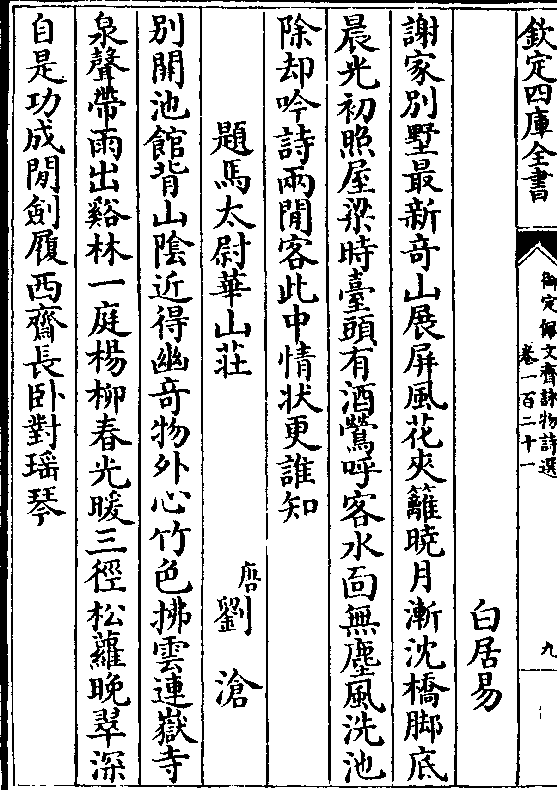 欽定四庫全書
御定佩文齋詠物詩選
卷一百二十一
九
白居易
謝家別墅最新奇山展屏風花夾籬曉月漸沈橋脚底
晨光初照屋梁時臺頭有酒鶯呼客水面無塵風洗池
除却吟詩兩閒客此中情狀更誰知
題馬太尉華山莊
唐劉滄
別開池館背山陰近得幽奇物外心竹色拂雲連嶽寺
泉聲帶雨出谿林一庭楊柳春光暖三徑松蘿晚翠深
自是功成閒劍履西齋長卧對瑶琴